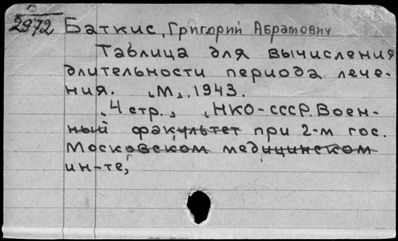 2972 Баткис, Григорий Абрамович
Таблица для вычисления
длительности периода лече-
ния. „М„, 1943.
„4 стр.„ „НКО-СССР. Воен-
ный факультет при 2-м гос.
Московском медицинском
ин-те,